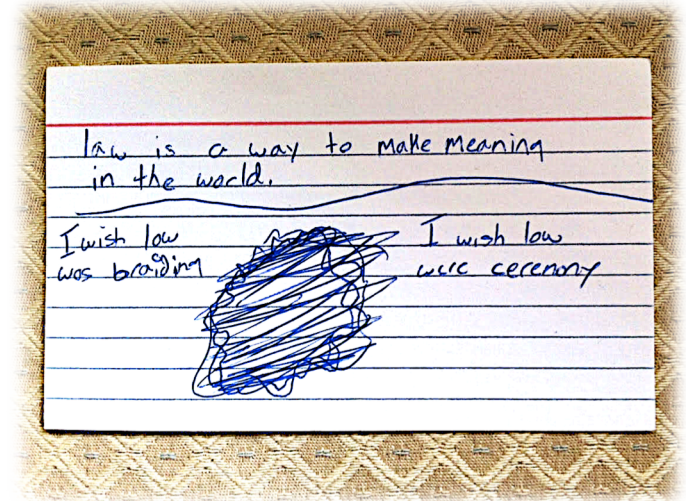 law is a way to make meaning
in the world.
I wish law
was braiding
I wish law
were ceremony